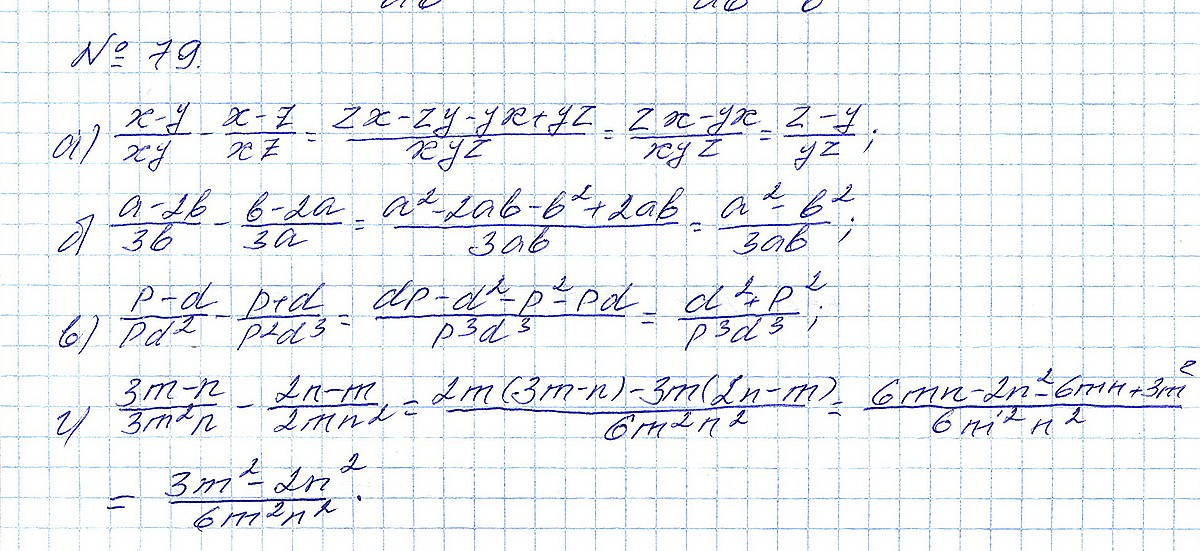 № 79.
а) (x-y)/(xy) - (x-z)/(xz) = (zx-zy-yx+yz)/(xyz) = (zx-yx)/(xyz) = (z-y)/(yz);
б) (a-2b)/(3b) - (b-2a)/(3a) = (a²-2ab-b²+2ab)/(3ab) = (a²-b²)/(3ab);
в) (p-d)/(pd²) - (p+d)/(p²d³) = (dp-d²-p²-pd)/(p³d³) = (d²+p²)/(p³d³);
г) (3m-n)/(3m²n) - (2n-m)/(2mn²) = (2m(3m-n)-3m(2n-m))/(6m²n²) = (6mn-2n²-6mn+3m²)/(6m²n²)
= (3m²-2n²)/(6m²n²).